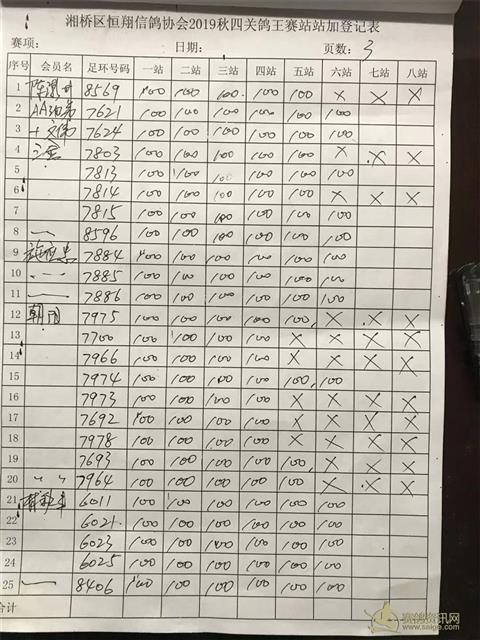 湘桥区恒翔信鸽协会2019秋四关鸽王赛站站加登记表
赛项: 日期: 页数: 3
序号 会员名 足环号码 一站 二站 三站 四站 五站 六站 七站 八站
1 8569 100 100 100 100 100 X X X
2 7621 100 100 100 100 100 100
3 7624 100 100 100 100 100 100
4 7803 100 100 100 100 100 X X X
5 7813 100 100 100 100 100 100
6 7814 100 100 100 100 100 X X X
7 7815 100 100 100 100 100 100
8 一 8596 100 100 100 100 100 100
9 7884 100 100 100 100 100 100
10 7885 100 100 100 100 100 100
11 7886 100 100 100 100 100 100
12 7975 100 100 100 100 100 X X X
13 7700 100 100 100 100 X X X X
14 7966 100 100 100 100 X X X X
15 7974 100 100 100 100 100 100
16 7973 100 100 100 100 X X X X
17 7692 100 100 100 100 X X X X
18 7978 100 100 100 100 X X X X
19 7693 100 100 100 100 100 100
20 〃 〃 7964 100 100 100 100 100 X X X
21 6011 100 100 100 100 100 100
22 6021 100 100 100 100 100 100
23 6023 100 100 100 100 100 100
24 6025 100 100 100 100 100 100
25 一 8406 100 100 100 100 100 100
合计
赛鸽资讯网
www.saige.com